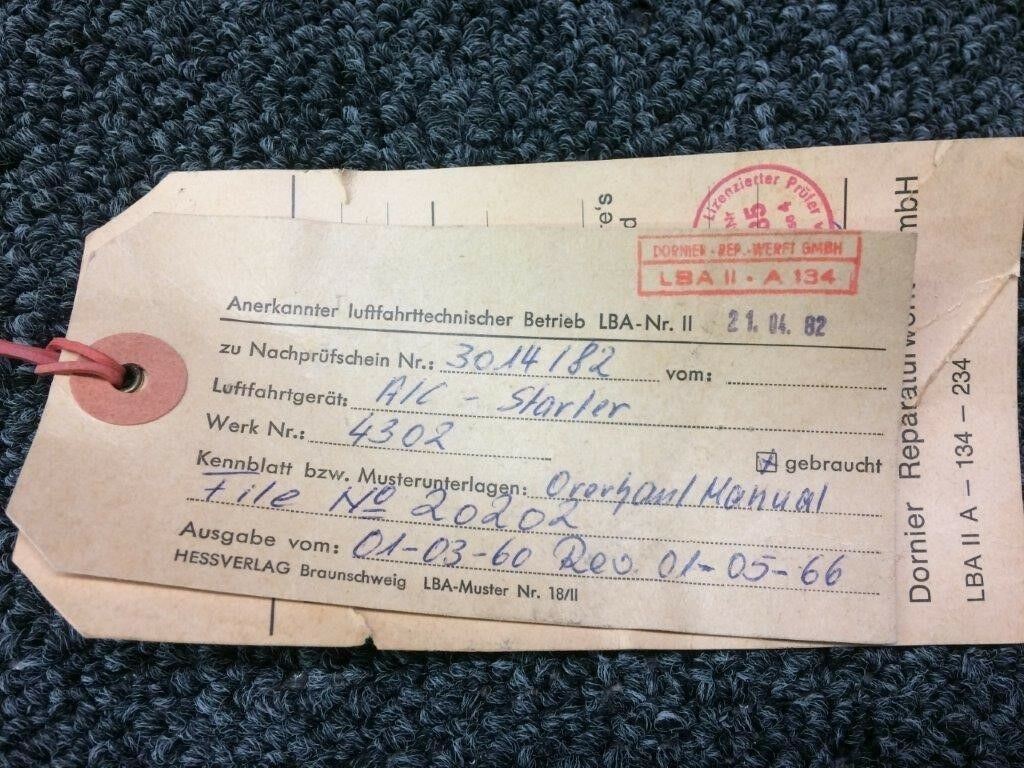 Lizenzierter Prüfer
DORNIER-REP.-WERFT GMBH
LBA II - A 134
Anerkannter luftfahrttechnischer Betrieb LBA-Nr. II 21. 04. 82
zu Nachprüfschein Nr.: 3014/82 vom:
Luftfahrtgerät: A/C - Starter
Werk Nr.: 4302
gebraucht
Kennblatt bzw. Musterunterlagen: Overhaul Manual
File No 20202
Ausgabe vom: 01-03-60 Rev. 01-05-66
HESSVERLAG Braunschweig LBA-Muster Nr. 18/II
Dornier Reparaturwerft GmbH
LBA II A - 134 - 234